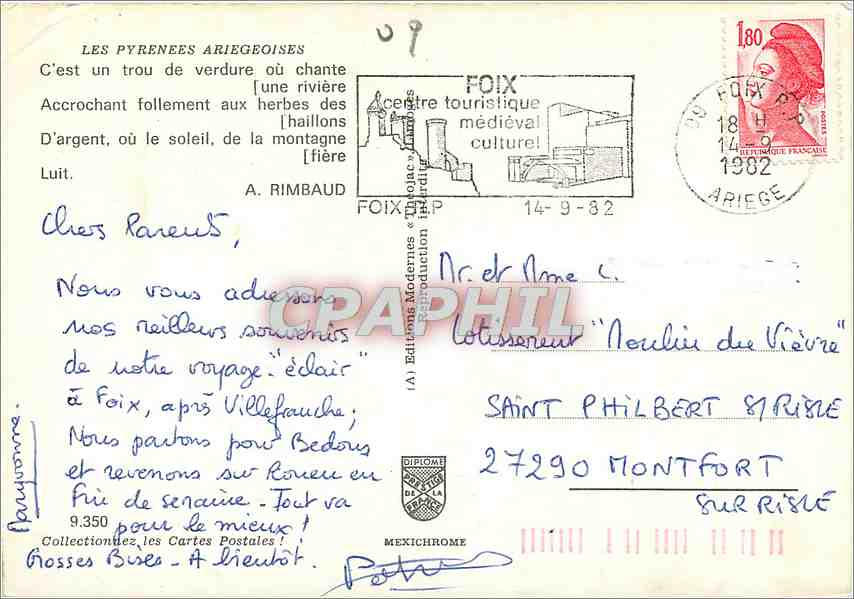 09
LES PYRENEES ARIEGEOISES
C'est un trou de verdure où chante
[une rivière
Accrochant follement aux herbes des
[haillons
D'argent, où le soleil, de la montagne
[fière
Luit.
A. RIMBAUD
FOIX
centre touristique
médiéval
culturel
FOIX R.P
14-9-82
1,80
POSTES
REPUBLIQUE FRANÇAISE
09 FOIX R.P
18 H
14-9
1982
ARIEGE
Chers Parents,
Nous vous adressons
nos meilleurs souvenirs
de notre voyage "éclair"
à Foix, après Villefranche;
Nous partons pour Bedous
et revenons sur Rouen en
fin de semaine - Tout va
pour le mieux!
Grosses Bises - A bientôt.
Maryvonne.
9.350
Collectionnez les Cartes Postales !
(A) Editions Modernes « Théojac » Limoges
Reproduction interdite
CPAPHIL
Mr. et Mme L.
Lotissement "Moulin du Vièvre"
SAINT PHILBERT S/ RISLE
27290 MONTFORT
SUR RISLE
DIPLOME
PRESTIGE
DE LA
FRANCE
MEXICHROME